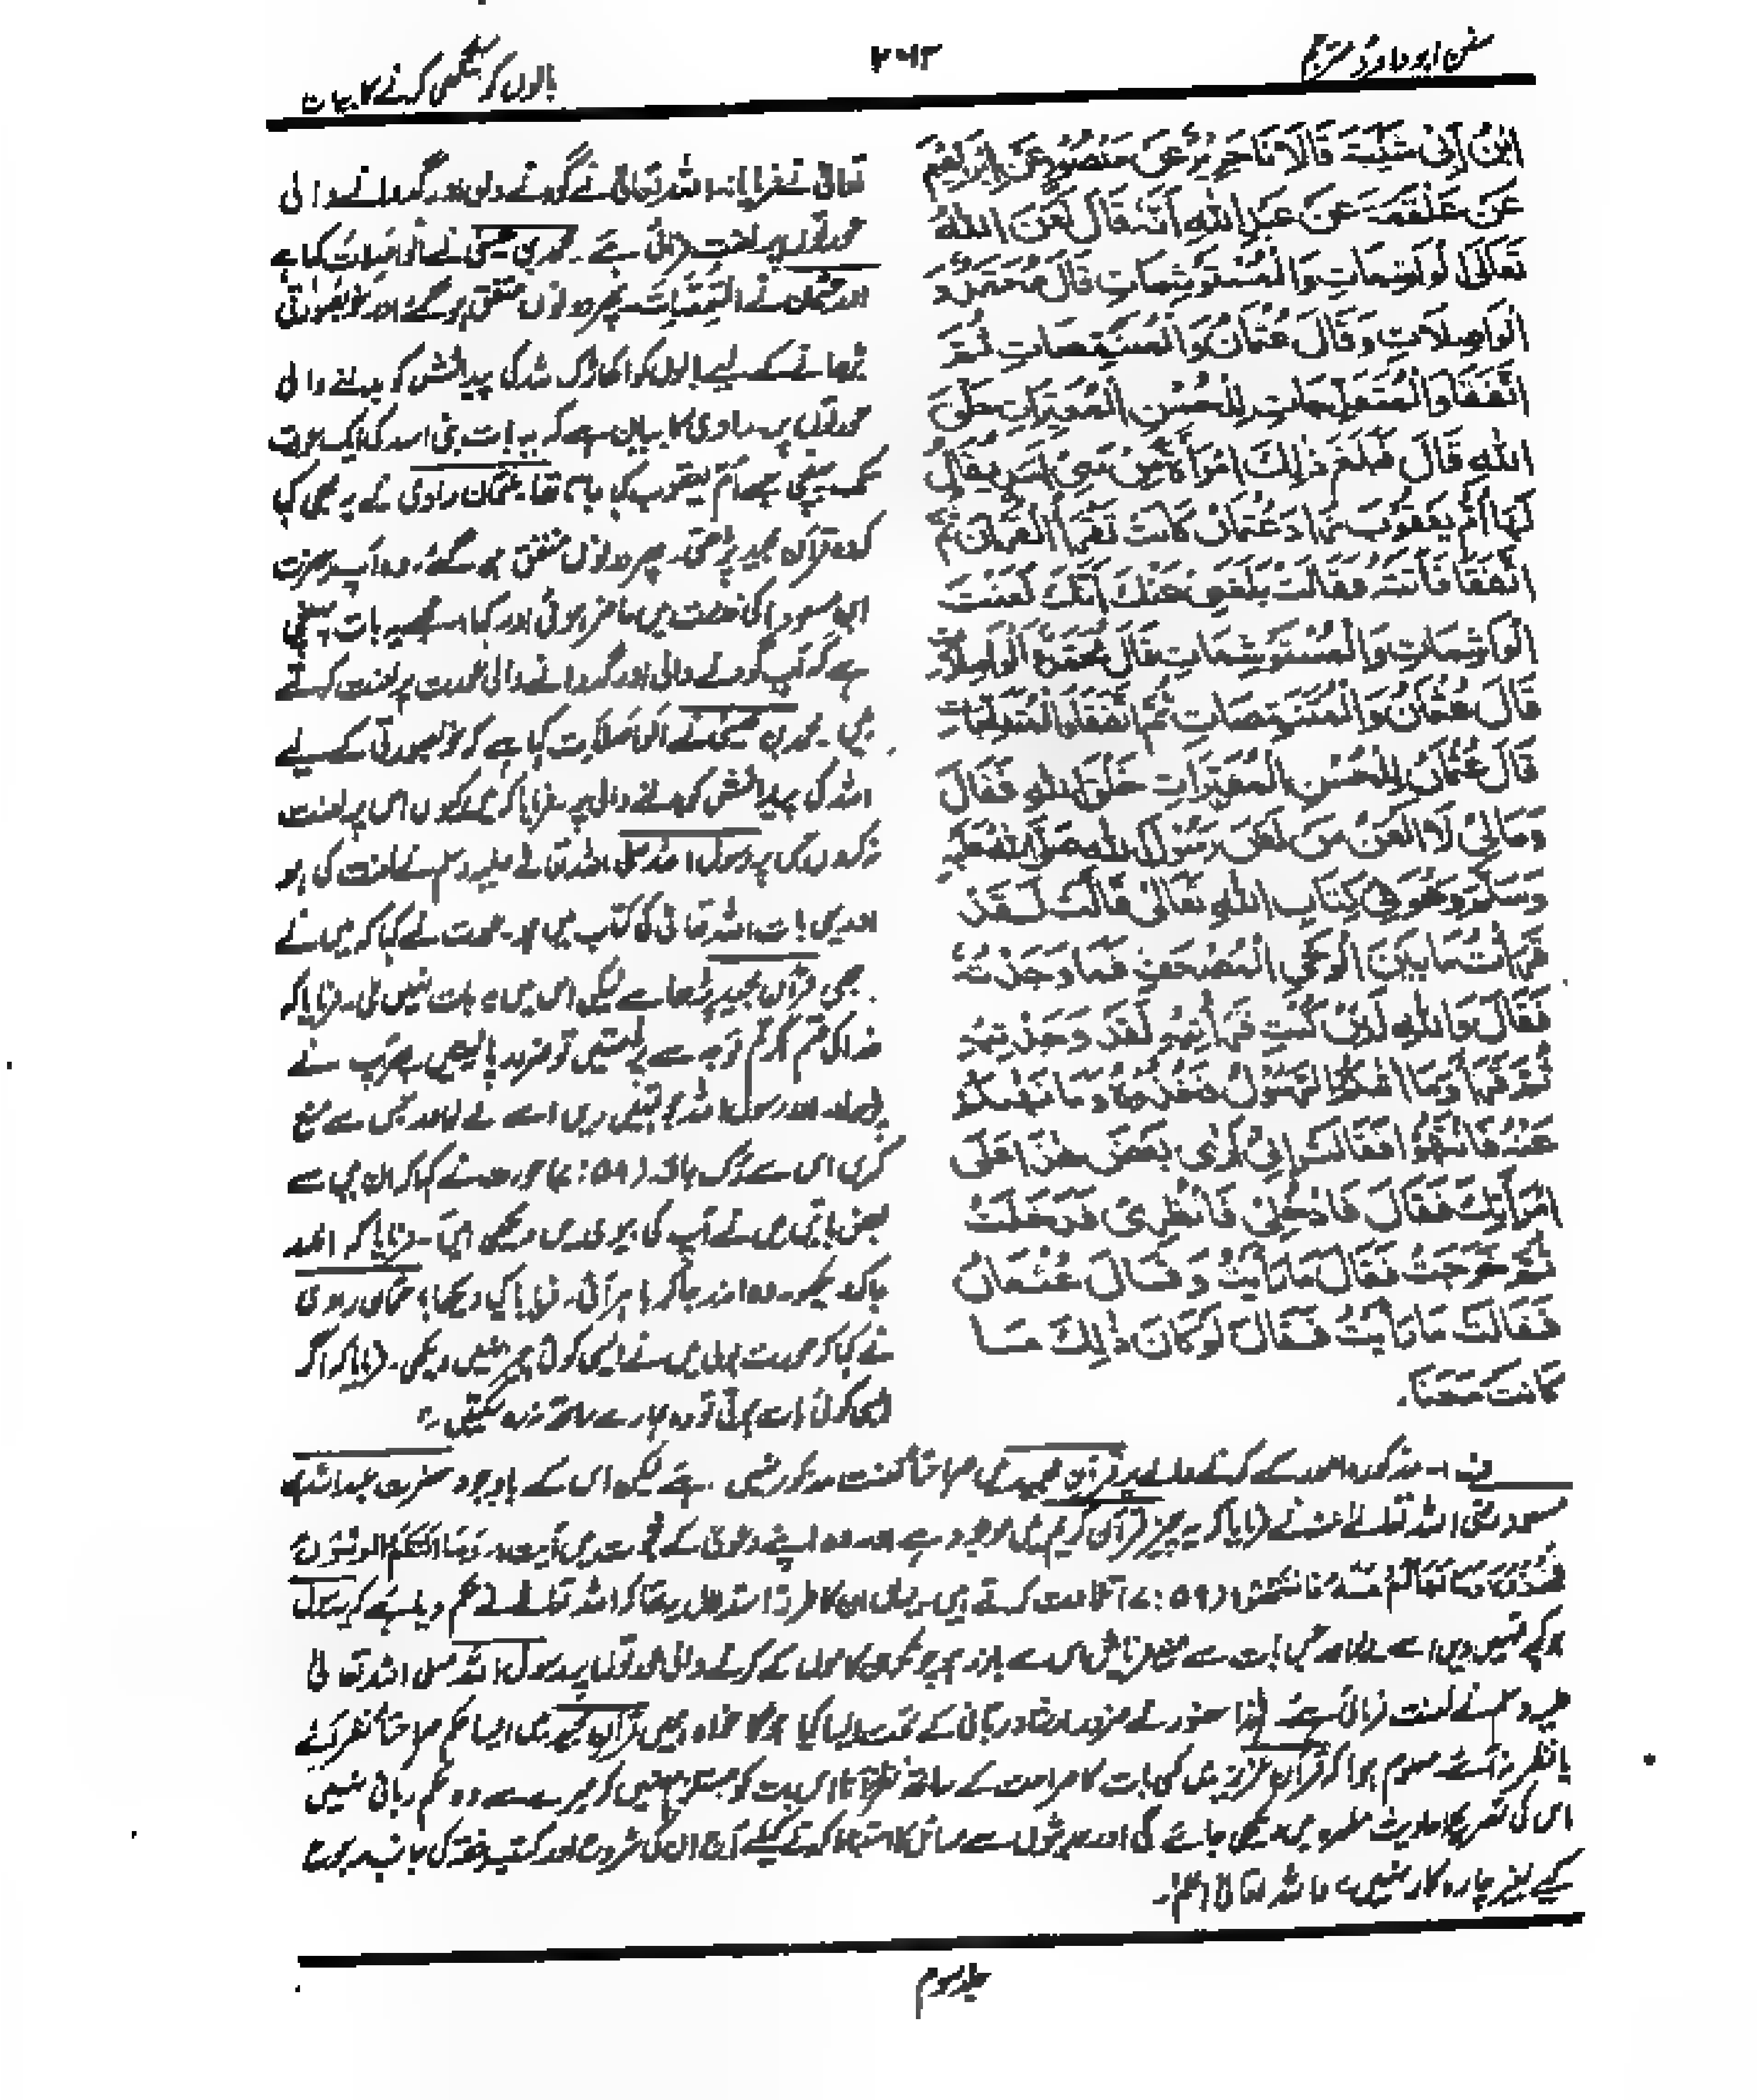 سنن ابو داؤد مترجم
۲۶۳
بالوں کو کنگھی کرنے کا بیان
ابْنُ أَبِي شَيْبَةَ قَالَا نَا جَرِيرٌ عَنْ مَنْصُورٍ عَنْ إِبْرَاهِيمَ
عَنْ عَلْقَمَةَ عَنْ عَبْدِ اللهِ أَنَّهُ قَالَ لَعَنَ اللهُ
تَعَالَى الْوَاشِمَاتِ وَالْمُسْتَوْشِمَاتِ قَالَ مُحَمَّدٌ وَ
الْوَاصِلَاتِ وَقَالَ عُثْمَانُ وَالْمُتَنَمِّصَاتِ ثُمَّ
اتَّفَقَا وَالْمُتَفَلِّجَاتِ لِلْحُسْنِ الْمُغَيِّرَاتِ خَلْقَ
اللهِ قَالَ فَبَلَغَ ذٰلِكَ امْرَأَةً مِنْ بَنِي أَسَدٍ يُقَالُ
لَهَا أُمُّ يَعْقُوبَ زَادَ عُثْمَانُ كَانَتْ تَقْرَأُ الْقُرْآنَ ثُمَّ
اتَّفَقَا فَأَتَتْهُ فَقَالَتْ بَلَغَنِي عَنْكَ أَنَّكَ لَعَنْتَ
الْوَاشِمَاتِ وَالْمُسْتَوْشِمَاتِ قَالَ مُحَمَّدٌ وَالْوَاصِلَاتِ وَ
قَالَ عُثْمَانُ وَالْمُتَنَمِّصَاتِ ثُمَّ اتَّفَقَا وَالْمُتَفَلِّجَاتِ
قَالَ عُثْمَانُ لِلْحُسْنِ الْمُغَيِّرَاتِ خَلْقَ اللهِ فَقَالَ
وَمَا لِيْ لَا أَلْعَنُ مَنْ لَعَنَ رَسُوْلُ اللهِ صَلَّى اللهُ عَلَيْهِ
وَسَلَّمَ وَهُوَ فِي كِتَابِ اللهِ تَعَالَى قَالَتْ لَقَدْ
قَرَأْتُ مَا بَيْنَ لَوْحَيِ الْمُصْحَفِ فَمَا وَجَدْتُهُ
فَقَالَ وَاللهِ لَئِنْ كُنْتِ قَرَأْتِيْهِ لَقَدْ وَجَدْتِيْهِ
ثُمَّ قَرَأَ وَمَا اٰتَاكُمُ الرَّسُوْلُ فَخُذُوْهُ وَمَا نَهٰكُمْ
عَنْهُ فَانْتَهُوْا فَقَالَتْ إِنِّيْ أَرٰى بَعْضَ هٰذَا عَلَى
امْرَأَتِكَ فَقَالَ فَادْخُلِيْ فَانْظُرِيْ فَدَخَلَتْ
ثُمَّ خَرَجَتْ فَقَالَ مَا رَأَيْتِ وَقَالَ عُثْمَانُ
فَقَالَتْ مَا رَأَيْتُ فَقَالَ لَوْ كَانَ ذٰلِكَ مَا
كَانَتْ مَعَنَا۔
تعالٰی نے فرمایا: اللہ تعالٰی نے گودنے والی اور گدوانے والی
عورتوں پر لعنت فرمائی ہے۔ محمد بن عیسٰی نے الْوَاصِلَات کہا ہے
اور عثمان نے الْمُتَنَمِّصَات۔ پھر دونوں متفق ہوگئے: اور خوبصورتی
بڑھانے کے لیے بالوں کو اکھاڑ کر اللہ کی پیدائش کو بدلنے والی
عورتوں پر۔ راوی کا بیان ہے کہ یہ بات بنی اسد کی ایک عورت
تک پہنچی جسے اُمّ یعقوب کہا جاتا تھا۔ عثمان راوی نے یہ بھی کہا
کہ وہ قرآن مجید پڑھتی۔ پھر دونوں متفق ہو گئے: وہ آپ حضرت
ابن مسعود کی خدمت میں حاضر ہوئی اور کہا: مجھے یہ بات پہنچی
ہے کہ آپ گودنے والی اور گدوانے والی عورت پر لعنت کرتے
ہیں۔ محمد بن عیسٰی نے الْوَاصِلَات کہا ہے کہ خوبصورتی کے لیے
اللہ کی پیدائش کو بدلنے والی پر۔ فرمایا کہ میں کیوں اس پر لعنت
نہ کروں جس پر رسول اللہ صلی اللہ تعالٰی علیہ وسلم نے لعنت کی ہو
اور یہی بات اللہ تعالٰی کی کتاب میں ہو۔ عورت نے کہا کہ میں نے
بھی قرآن مجید پڑھا ہے لیکن اس میں یہ بات نہیں ملی۔ فرمایا کہ
خدا کی قسم اگر تم توجہ سے پڑھتیں تو ضرور پالیتیں۔ پھر آپ نے
پڑھا: اور رسول اللہ جو تمہیں دیں اسے لے لو اور جس سے منع
کریں اس سے رُک جاؤ (۵۹: ۷) عورت نے کہا کہ ان میں سے
بعض باتیں میں نے آپ کی بیوی میں دیکھی ہیں۔ فرمایا کہ اندر
جا کر دیکھو۔ وہ اندر جا کر باہر آئی۔ فرمایا کیا دیکھا؟ عثمان راوی
نے کہا کہ عورت بولی میں نے ایسی کوئی چیز نہیں دیکھی۔ فرمایا کہ اگر
ایسی کوئی بات ہوتی تو وہ ہمارے ساتھ نہ رہ سکتیں۔
ف ۱۔ مذکورہ امور کے کرنے والے پر قرآن مجید میں صراحتاً لعنت مذکور نہیں ہے لیکن اس کے باوجود حضرت عبداللہ بن
مسعود رضی اللہ تعالٰی عنہ نے فرمایا کہ یہ چیز قرآن کریم میں موجود ہے اور وہ اپنے دعوٰی کے ثبوت میں آیت: وَمَا اٰتَاکُمُ الرَّسُوْلُ
فَخُذُوْهُ وَمَا نَهَاكُمْ عَنْهُ فَانْتَهُوْا (۵۹: ۷) تلاوت کرتے ہیں۔ یہاں ان کا طرز استدلال یہ تھا کہ اللہ تعالٰی نے حکم دیا ہے کہ رسول
جو کچھ تمہیں دیں اسے لے لو اور جس بات سے منع فرمائیں اس سے باز رہو۔ چونکہ ان کاموں کے کرنے والی عورتوں پر رسول اللہ صلی اللہ تعالٰی
علیہ وسلم نے لعنت فرمائی ہے۔ لہٰذا حضور نے ضرور ارشاد ربانی کے تحت ایسا کیا ہوگا خواہ ہمیں قرآن مجید میں ایسا حکم صراحتاً نظر آئے
یا نظر نہ آئے۔ معلوم ہوا کہ قرآن عزیز میں کسی بات کا صراحت کے ساتھ نظر نہ آنا اس بات کو مستلزم نہیں کہ سرے سے وہ حکم ربانی نہیں
اس کی تشریح احادیث مطہرہ میں دیکھی جائے گی اور حدیثوں سے مسائل کا استنباط کرنے کیلئے ان کی شروح اور کتب فقہ کی جانب رجوع
کیے بغیر چارہ کار نہیں۔ واللہ تعالٰی اعلم۔
جلد سوم